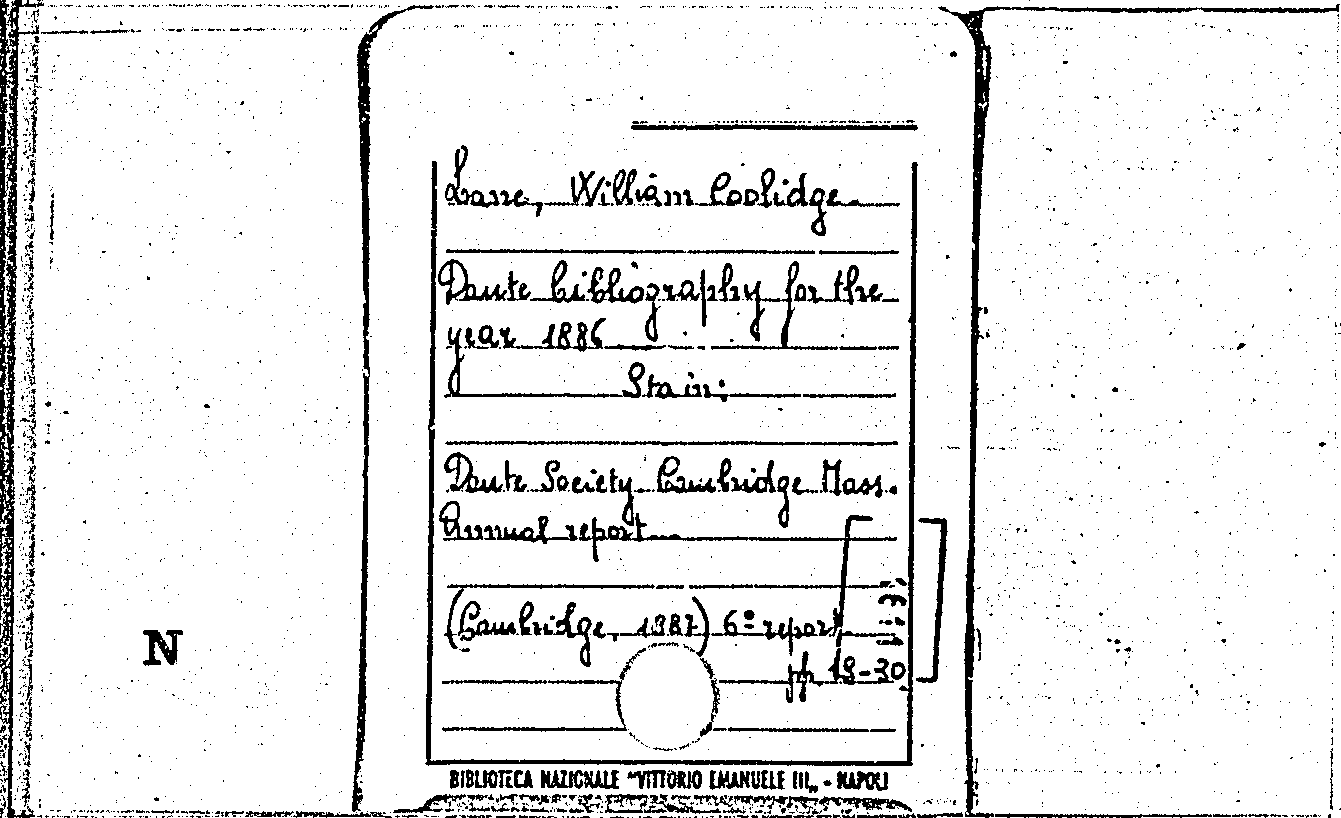 Lane, William Coolidge.
Dante bibliography for the
year 1886
Sta in:
Dante Society. Cambridge Mass.
Annual report
(Cambridge, 1887) 6º report
pp. 19-30
N
BIBLIOTECA NAZIONALE "VITTORIO EMANUELE III„ - NAPOLI